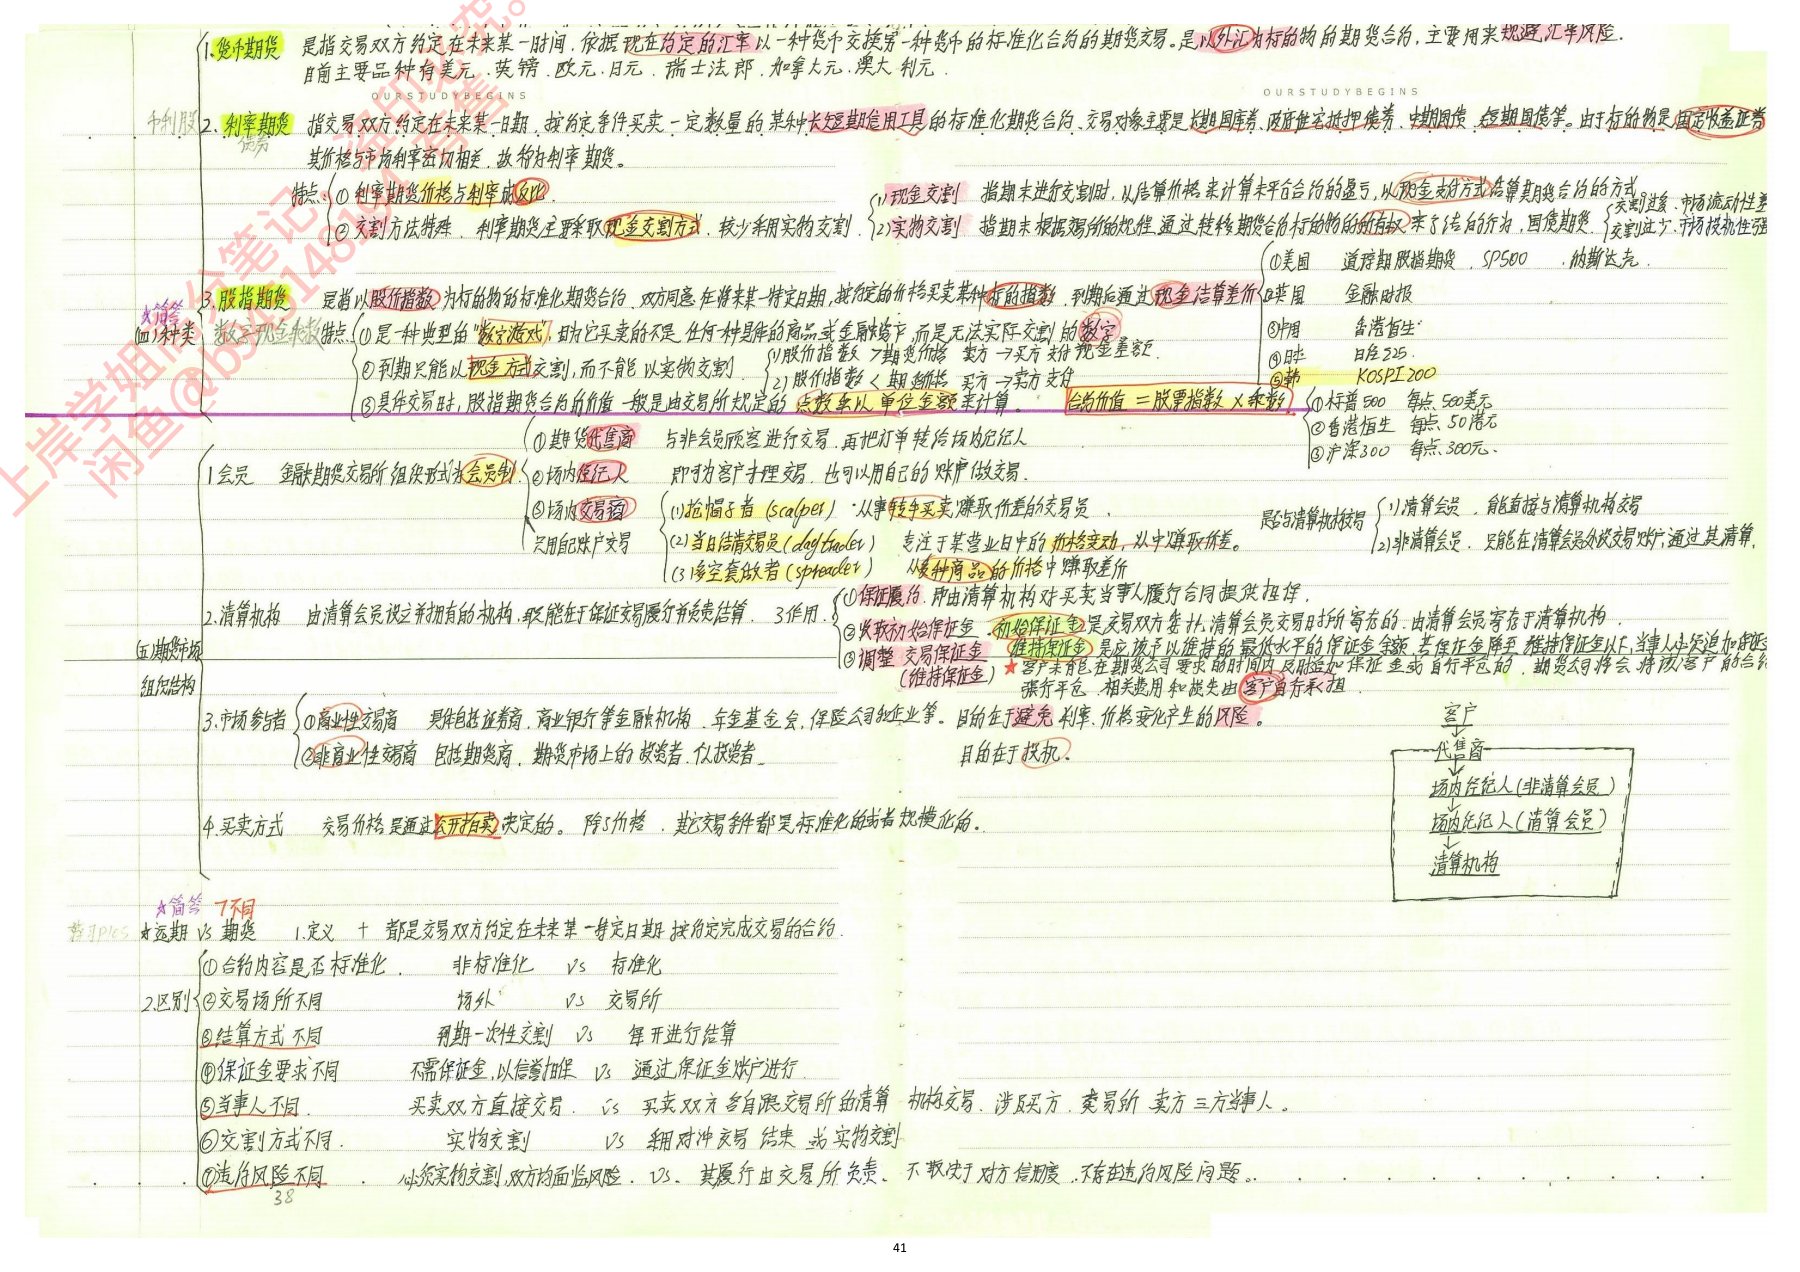 1.货币期货 是指交易双方约定在未来某一时间,依据现在约定的汇率以一种货币交换另一种货币的标准化合约的期货交易。是以外汇为标的物的期货合约,主要用来规避汇率风险.
目前主要品种有美元、英镑、欧元、日元、瑞士法郎、加拿大元、澳大利元.
OURSTUDYBEGINS OURSTUDYBEGINS
币利股 2. 利率期货 指交易双方约定在未来某一日期,按约定条件买卖一定数量的某种长短期信用工具的标准化期货合约,交易对象主要是长期国库券、政府住宅抵押债券、中期国债、短期国债等。由于标的物是固定收益证券
债券
其价格与市场利率密切相关,故称为利率期货。
特点 ①利率期货价格与利率成反比
②交割方法特殊、利率期货主要采取现金交割方式,较少采用实物交割.
(1)现金交割 指期末进行交割时,以结算价格来计算未平仓合约的盈亏,以现金支付方式结算期货合约的方式
(2)实物交割 指期末根据交易所的规程,通过转移期货合约标的物的所有权来了结的行为,国债期货.
交割过多,市场流动性差
交割过少,市场投机性强
☆简答
(四)种类
3.股指期货 是指以股价指数为标的物的标准化期货合约,双方同意在将来某一特定日期,按约定的价格买卖某种标的指数,到期后通过现金结算差价
数字现金乘数
特点 ①是一种典型的"数字游戏",因为它买卖的不是任何一种具体的商品或金融资产,而是无法实际交割的数字
②到期只能以现金方式交割,而不能以实物交割
(1)股价指数>期货价格 卖方→买方支付现金差额.
(2)股价指数<期货价格 买方→卖方支付
③具体交易时,股指期货合约的价值一般是由交易所规定的点数乘以单位金额来计算。 合约价值=股票指数×乘数
①美国 道琼斯股指期货、SP500、纳斯达克
②英国 金融时报
③中国 香港恒生
④日本 日经225.
⑤韩 KOSPI 200
①标普500 每点500美元
②香港恒生 每点50港元
③沪深300 每点300元.
1会员 金融期货交易所组织形式为会员制
①期货代售商 与非会员顾客进行交易,再把订单转给场内经纪人
②场内经纪人 即可为客户办理交易,也可以用自己的账户做交易.
③场内交易商
只用自己账户交易
(1)抢帽子者(scalper) 从事转手买卖赚取价差的交易员.
(2)当日结清交易员(daytrader) 专注于某营业日中的价格变动,从中赚取价差。
(3)多空套做者(spreader) 从多种商品的价格中赚取差价
是否与清算机构交易 (1)清算会员、能直接与清算机构交易
(2)非清算会员、只能在清算会员处设交易账户,通过其清算.
(五)期货市场
组织结构
2.清算机构 由清算会员设立并拥有的机构,职能在于保证交易履行并负责结算. 3作用.
①保证履约、即由清算机构对买卖当事人履行合同提供担保.
②收取初始保证金.初始保证金是交易双方委托清算会员交易时所寄存的,由清算会员寄存于清算机构.
③调整交易保证金 维持保证金是应该予以维持的最低水平的保证金余额.若保证金降至维持保证金以下,当事人必须追加保证金
(维持保证金)★客户未有能在期货公司要求的时间内及时追加保证金或自行平仓的,期货公司将会将该客户的合约
强行平仓,相关费用和损失由客户自行承担.
3.市场参与者 ①商业性交易商 具体包括证券商,商业银行等金融机构、年金基金会,保险公司和企业等。目的在于避免利率、价格变化产生的风险。
②非商业性交易商 包括期货商,期货市场上的投资者.个人投资者 目的在于投机。
客户
代售商
场内经纪人(非清算会员)
场内经纪人(清算会员)
清算机构
4.买卖方式 交易价格是通过公开拍卖决定的。除了价格,其它交易条件都是标准化的或者规模化的。
☆简答 7不同
☆远期 vs 期货 1.定义 + 都是交易双方约定在未来某一特定日期按约定完成交易的合约.
2区别 ①合约内容是否标准化. 非标准化 vs 标准化
②交易场所不同 场外 vs 交易所
③结算方式不同 到期一次性交割 vs 每天进行结算
④保证金要求不同 不需保证金,以信誉担保 vs 通过保证金账户进行
⑤当事人不同. 买卖双方直接交易. vs 买卖双方各自跟交易所的清算机构交易.涉及买方、交易所、卖方三方当事人。
⑥交割方式不同. 实物交割 vs 利用对冲交易结束或实物交割
⑦违约风险不同 必须实物交割,双方均面临风险. vs. 其履行由交易所负责、不取决于对方信用度,不存在违约风险问题。
38
41
上岸学姐高分笔记,盗印必究。